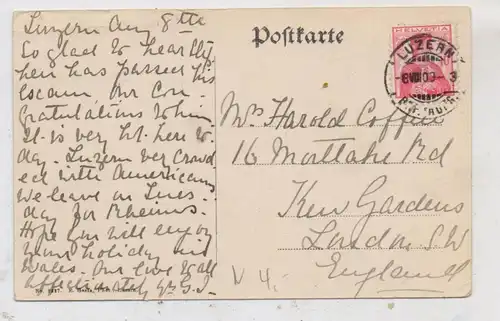 Luzern Aug 8th
So glad to hear
hen has passed his
exam our Con
gratulations to him
It is very hot here to
day. Luzern very Crowd
ed with Americans
We leave on Tues
day for Rheims.
Hope you will enjoy
your holiday in
Wales. Our love to all
affectionately
Postkarte
HELVETIA
LUZERN
Mrs Harold Coffin
16 Mortlake Rd
Kew Gardens
London S.W
England